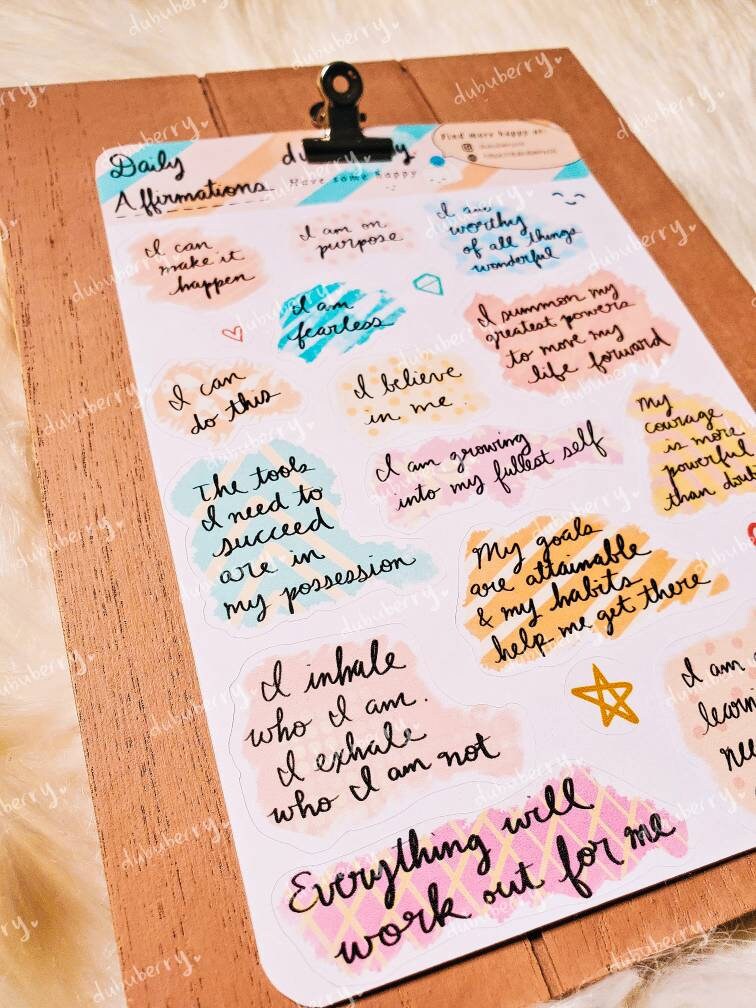 Daily
Affirmations
Have some happy
Find more happy at:
I can
make it
happen
I am on
purpose
I am
worthy
of all things
wonderful
I am
fearless
I summon my
greatest powers
to move my
life forward
I can
do this
I believe
in me.
My
courage
is more
powerful
than
I am growing
into my fullest self
The tools
I need to
succeed
are in
my possession
My goals
are attainable
& my habits
help me get there
I inhale
who I am.
I exhale
who I am not
I am
Everything will
work out for me
dububerry